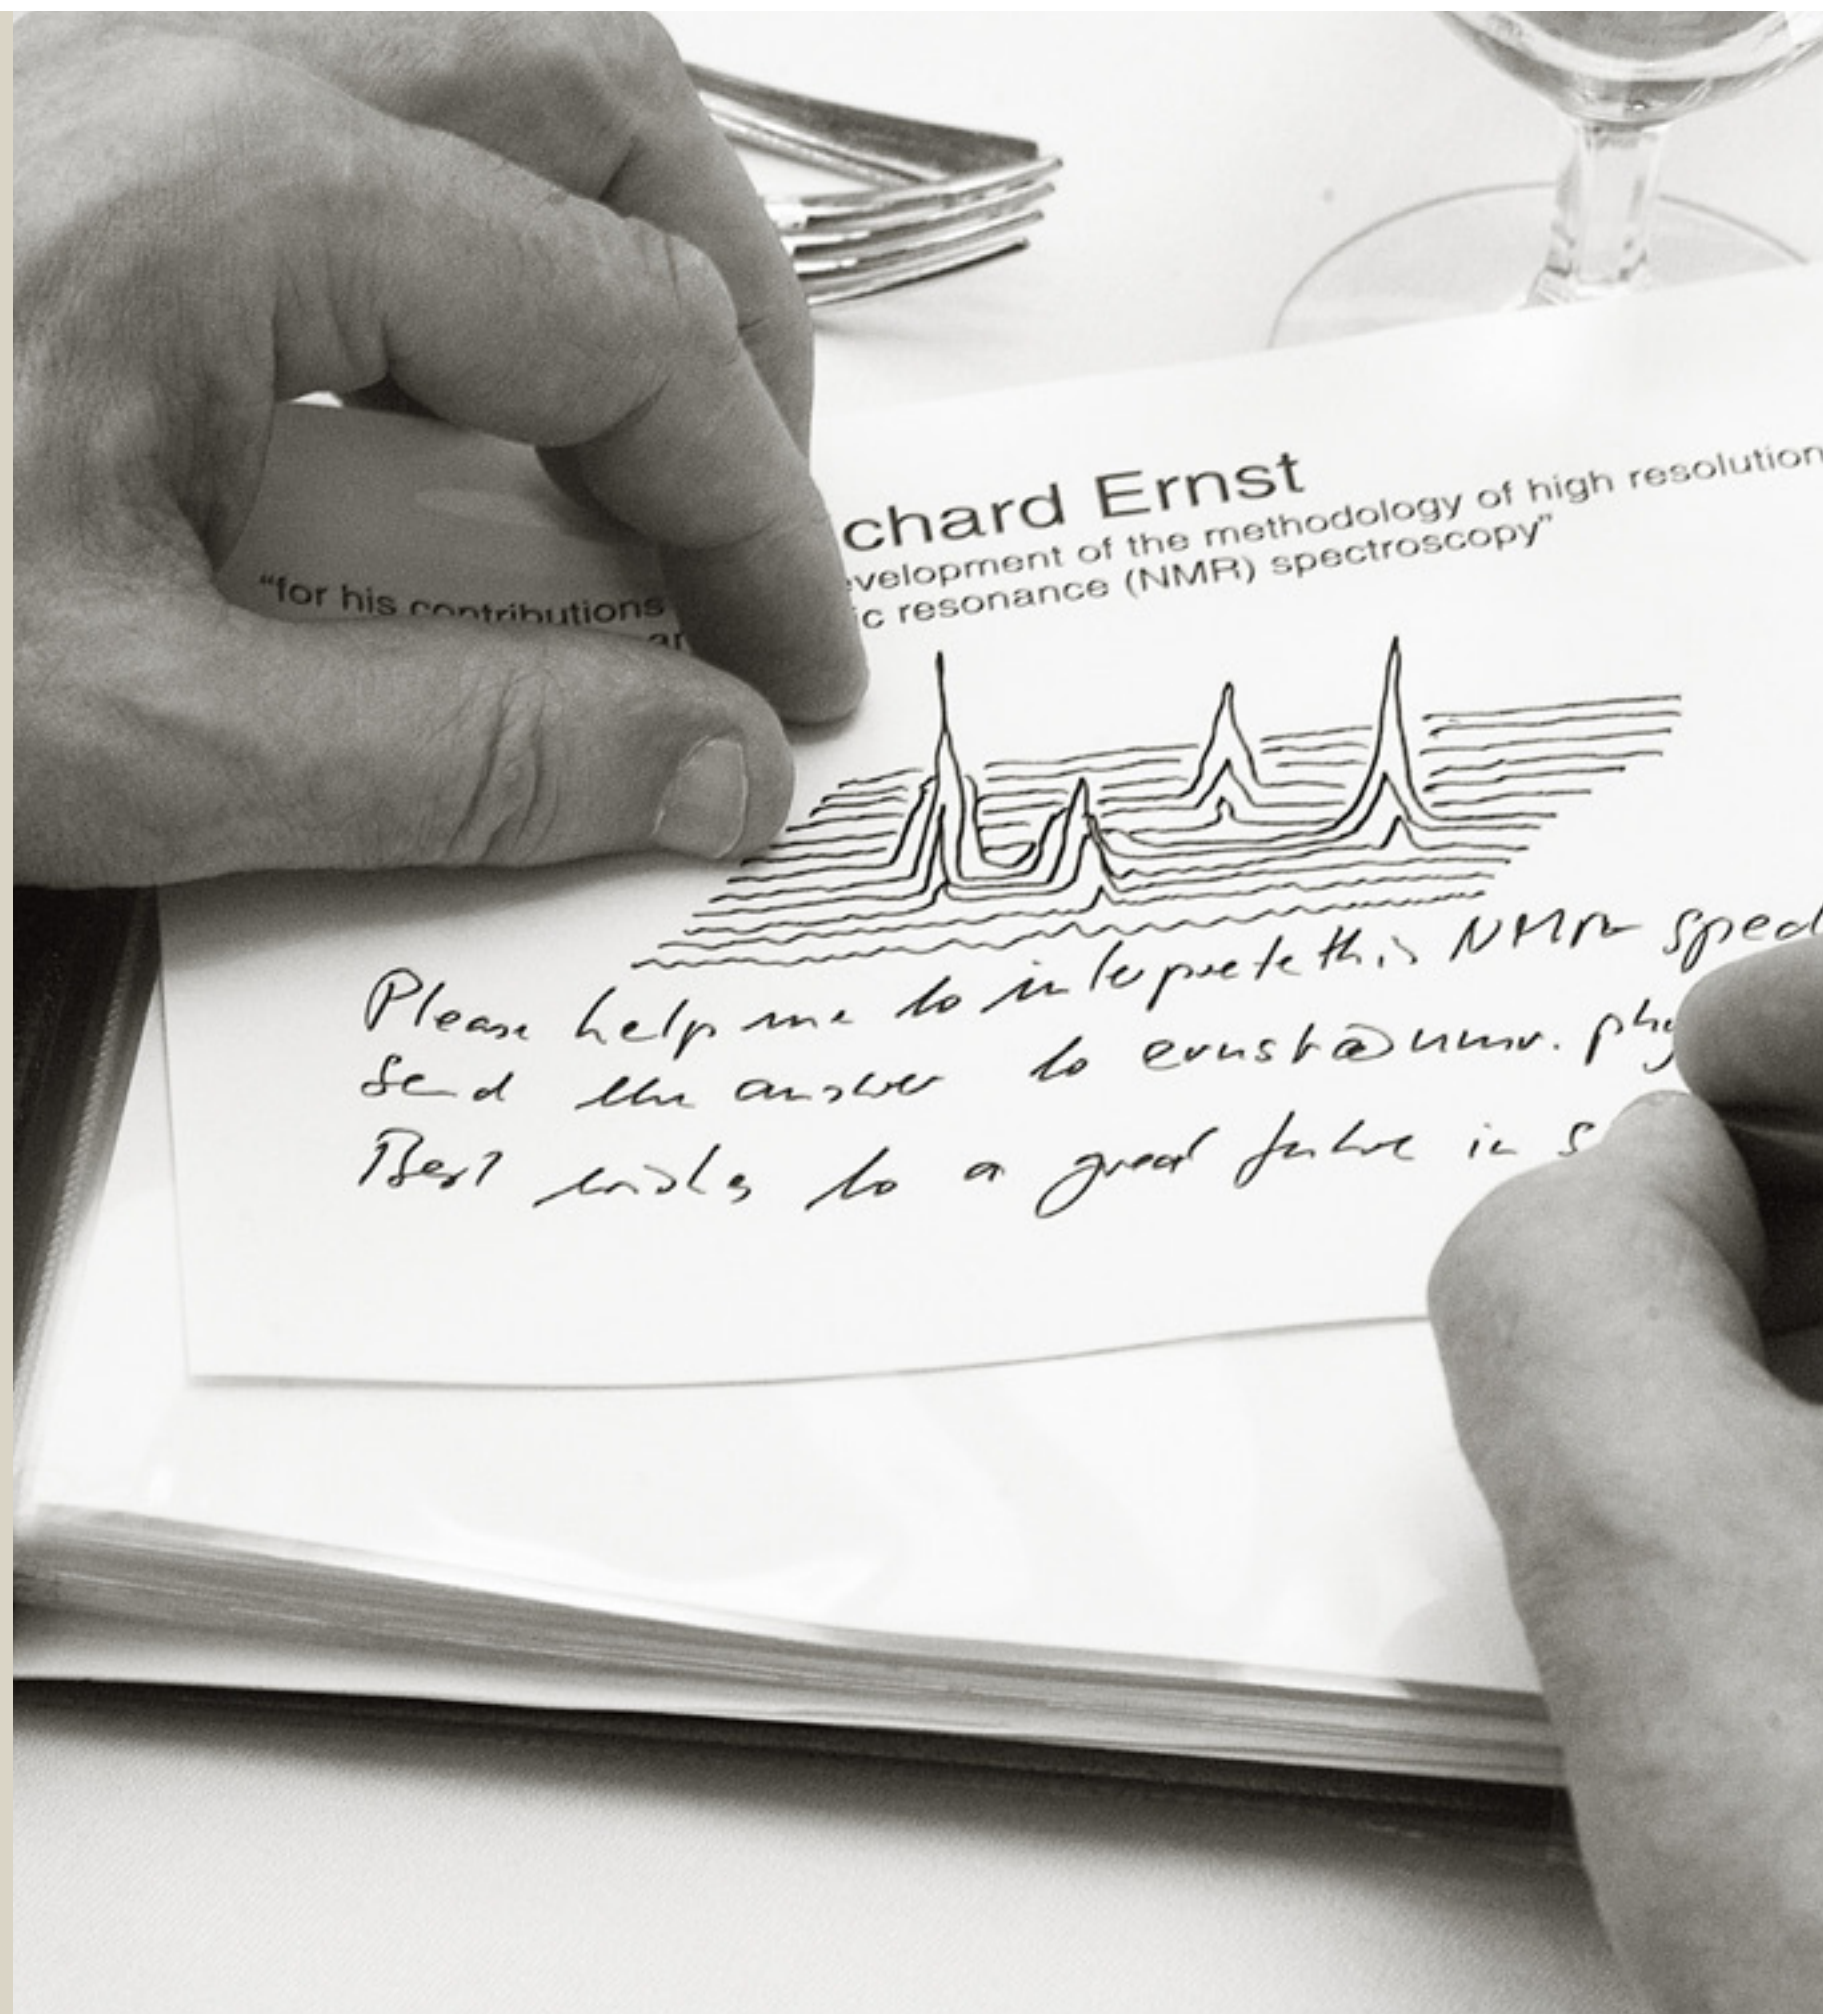 chard Ernst
"for his contributions evelopment of the methodology of high resolution
ar ic resonance (NMR) spectroscopy"
Please help me to interprete this NMR spec
Send the answer to ernst@nmr. phy
Best wishes to a great future in s